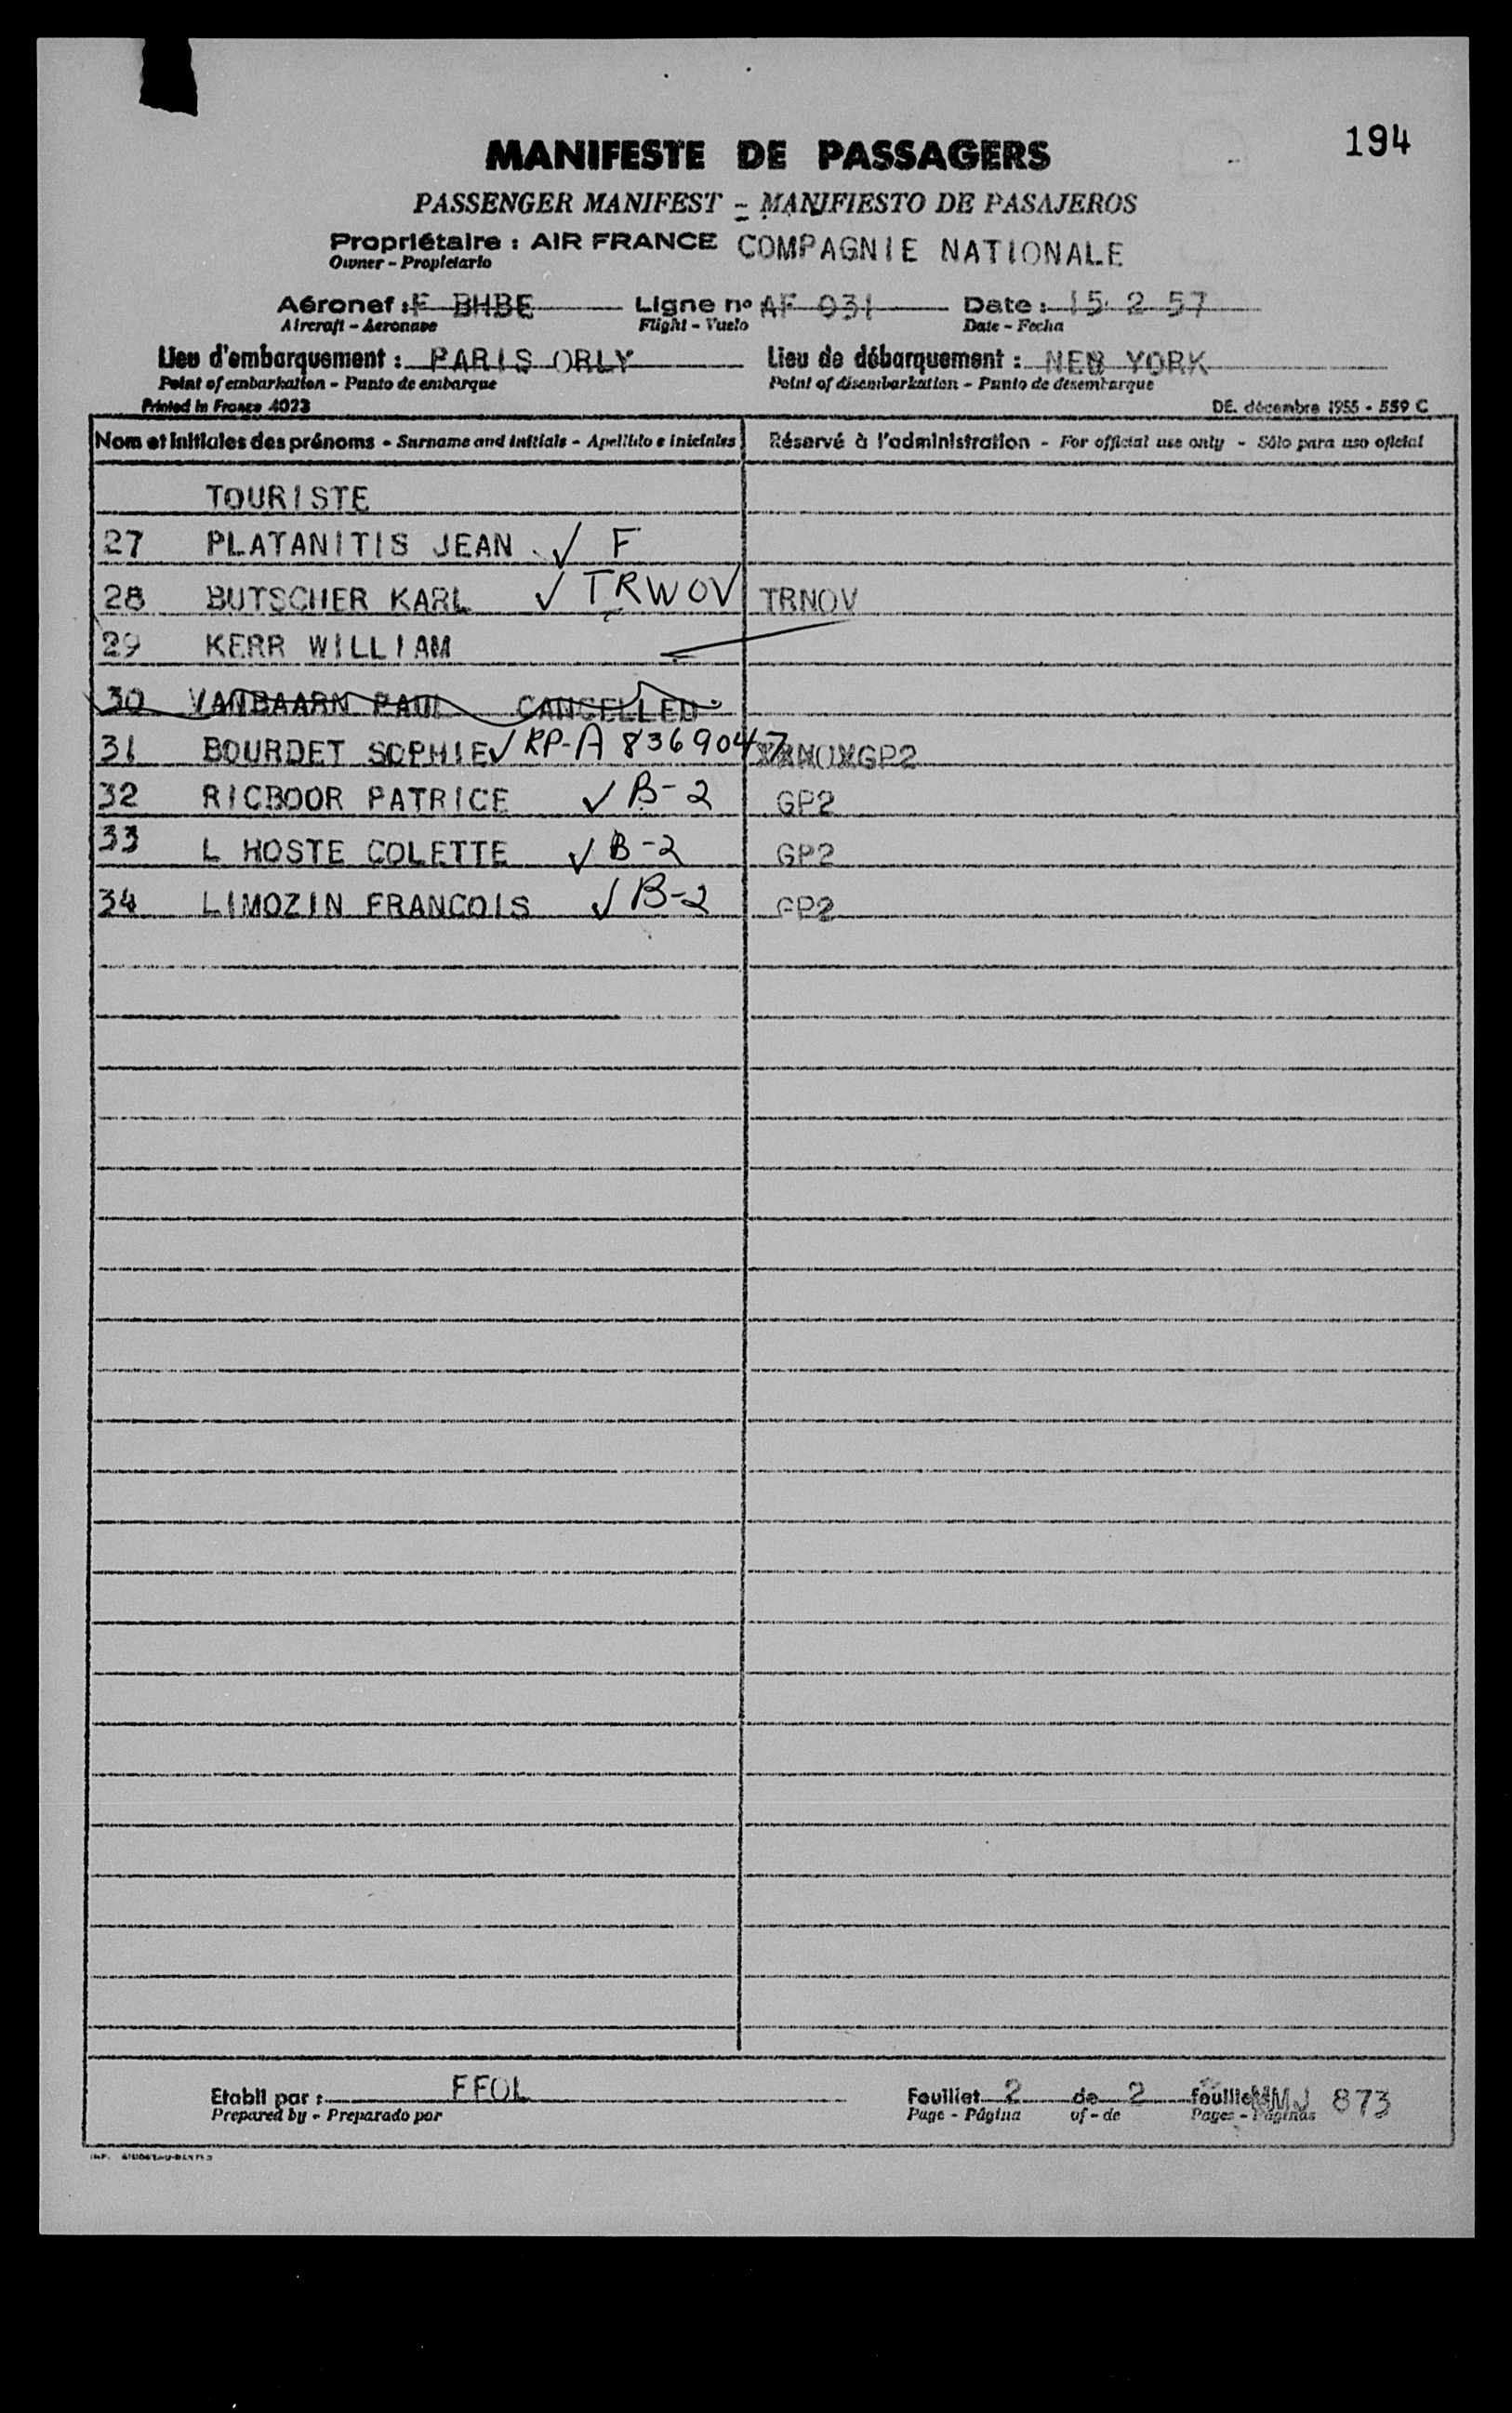 194
MANIFESTE DE PASSAGERS
PASSENGER MANIFEST - MANIFIESTO DE PASAJEROS
Propriétaire : AIR FRANCE COMPAGNIE NATIONALE
Owner - Propietario
Aéronef : F BHBE Ligne nº AF 031 Date : 15 2 57
Aircraft - Aeronave Flight - Vuelo Date - Fecha
Lieu d'embarquement : PARIS ORLY Lieu de débarquement : NEW YORK
Point of embarkation - Punto de embarque Point of disembarkation - Punto de desembarque
Printed in France 4023 DE. décembre 1955 - 559 C
Nom et initiales des prénoms - Surname and initials - Apellido e iniciales Réservé à l'administration - For official use only - Sólo para uso oficial
TOURISTE
27 PLATANITIS JEAN ✓ F
28 BUTSCHER KARL ✓ TRWOV TRNOV
29 KERR WILLIAM
30 VANBAARN PAUL CANCELLED
31 BOURDET SOPHIE ✓ RP-A 8369047 GP2
32 RICBOOR PATRICE ✓ B-2 GP2
33 L HOSTE COLETTE ✓ B-2 GP2
34 LIMOZIN FRANCOIS ✓ B-2 GP2
Etabli par : FFOL Feuillet 2 de 2 feuillets MMJ 873
Prepared by - Preparado por Page - Página of - de Pages - Páginas